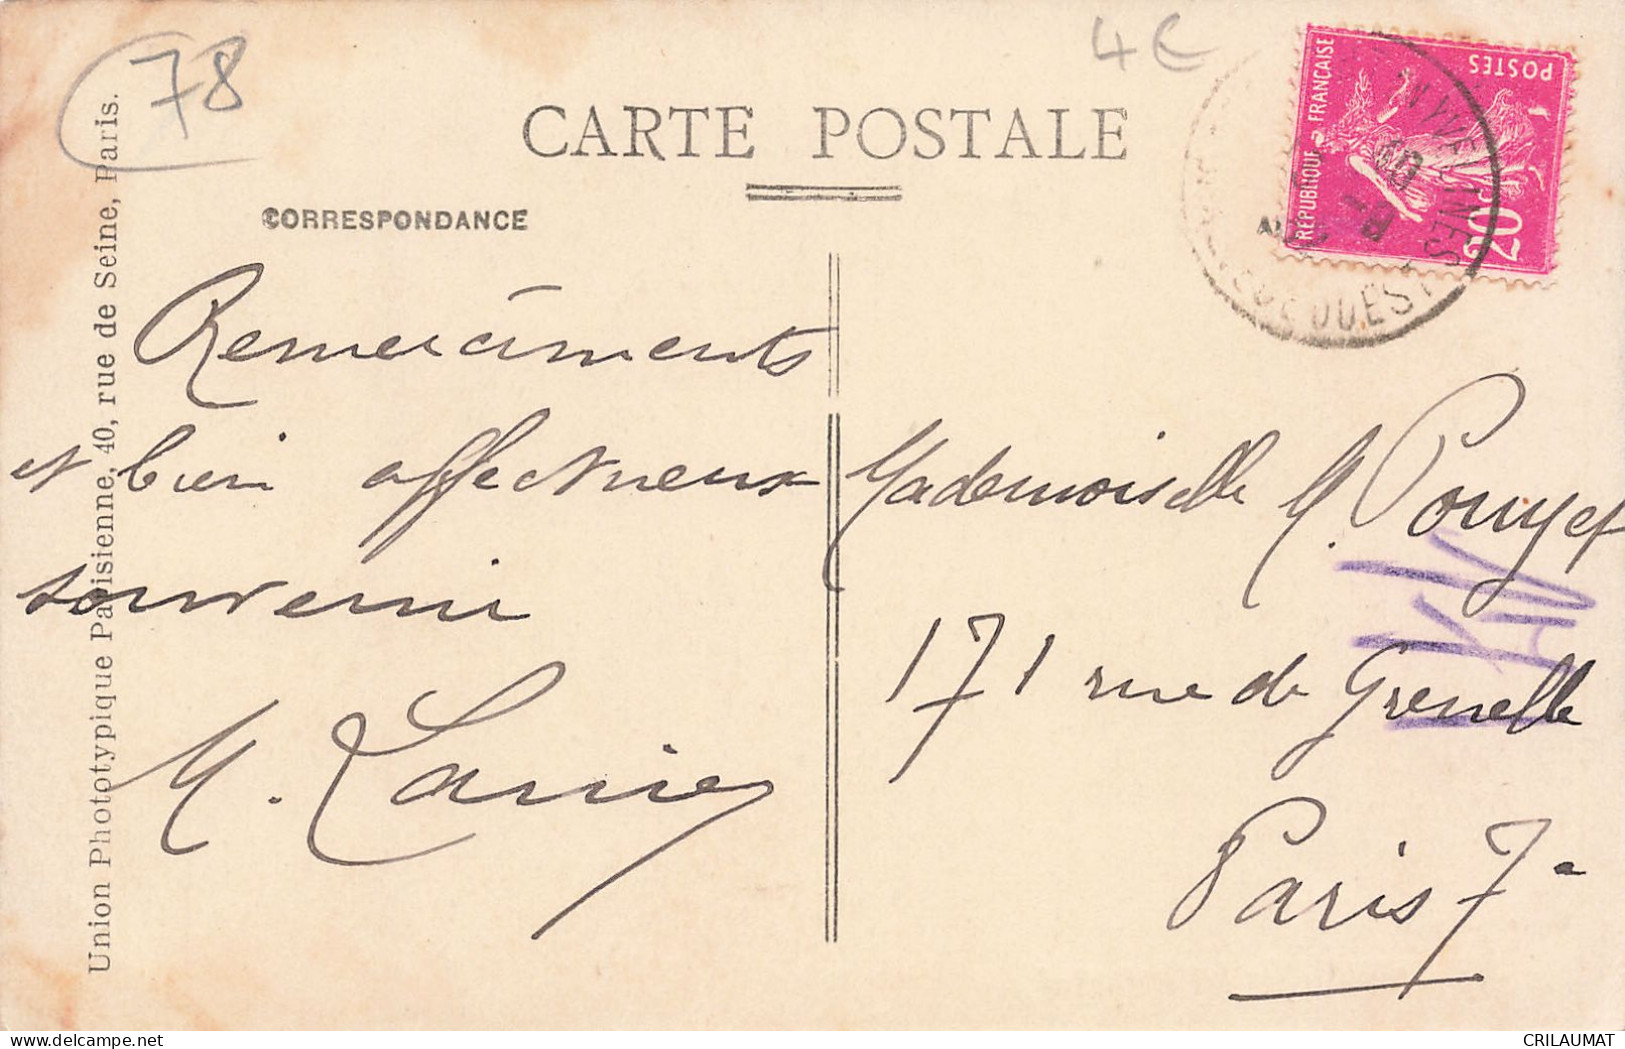 78
4€
CARTE POSTALE
CORRESPONDANCE
RÉPUBLIQUE FRANÇAISE
POSTES
20
OUEST
Union Phototypique Parisienne, 40, rue de Seine, Paris.
Remerciements
et bien affectueux
souvenir
Mademoiselle M. Pouyet
171 rue de Grenelle
Paris 7e
CRILAUMAT